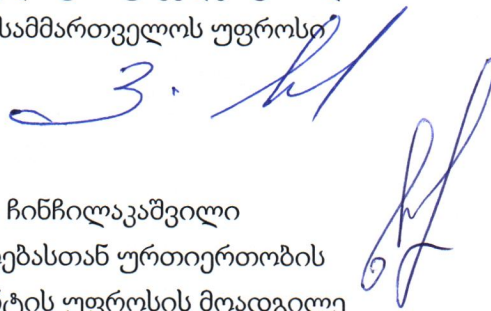 სამმართველოს უფროსი
ჩინჩილაკაშვილი
ებასთან ურთიერთობის
ნტის უფროსის მოადგილე